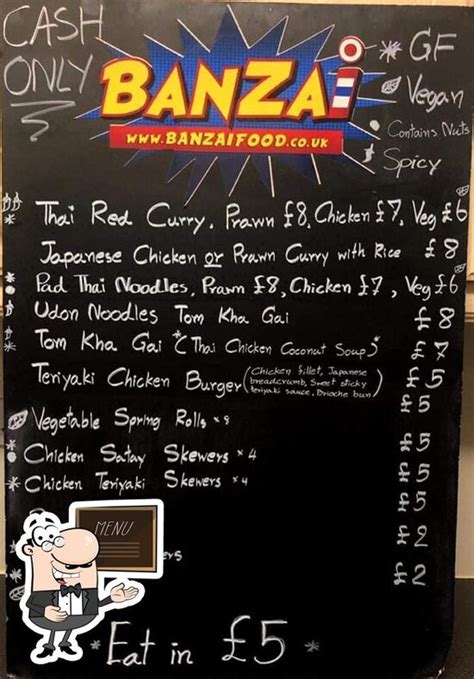 CASH
ONLY
BANZAi
WWW.BANZAIFOOD.CO.UK
* GF
Vegan
• Contains Nuts
Spicy
* Thai Red Curry, Prawn £8, Chicken £7, Veg £6
Japanese Chicken or Prawn Curry with Rice £8
* Pad Thai Noodles, Prawn £8, Chicken £7, Veg £6
Udon Noodles Tom Kha Gai £8
* Tom Kha Gai (Thai Chicken Coconut Soup) £7
Teriyaki Chicken Burger (Chicken fillet, Japanese breadcrumb, Sweet sticky teriyaki sauce, Brioche bun) £5
£5
Vegetable Spring Rolls
• Chicken Satay Skewers × 4 £5
* Chicken Teriyaki Skewers × 4 £5
£5
£2
£2
MENU
* Eat in £5 *